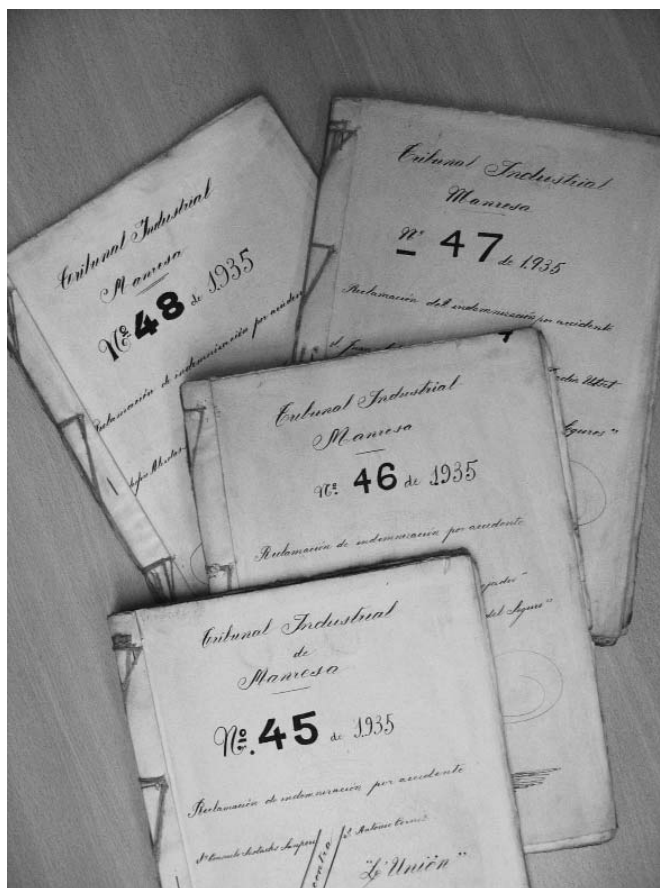 Tribunal Industrial
Manresa
Nº 48 de 1935
Reclamación de indemnización por acciden
Tribunal Industrial
Manresa
Nº 47 de 1935
Reclamación del indemnización por accidente
Seguros"
Tribunal Industrial
Manresa
Nº 46 de 1935
Reclamación de indemnización por accidente
del Seguro"
Tribunal Industrial
de
Manresa
Nº. 45 de 1935
Reclamación de indemnización por accidente
contra
D. Antonio
"L'Unión"